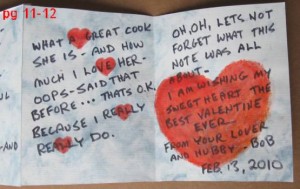 pg 11-12
WHAT A GREAT COOK
SHE IS - AND HOW
MUCH I LOVE HER -
OOPS - SAID THAT
BEFORE... THATS O.K.
BECAUSE I REALLY
REALLY DO.
OH, OH, LETS NOT
FORGET WHAT THIS
NOTE WAS ALL
ABOUT -
I AM WISHING MY
SWEETHEART THE
BEST VALENTINE
EVER
FROM YOUR LOVER
AND HUBBY BOB
FEB. 13, 2010